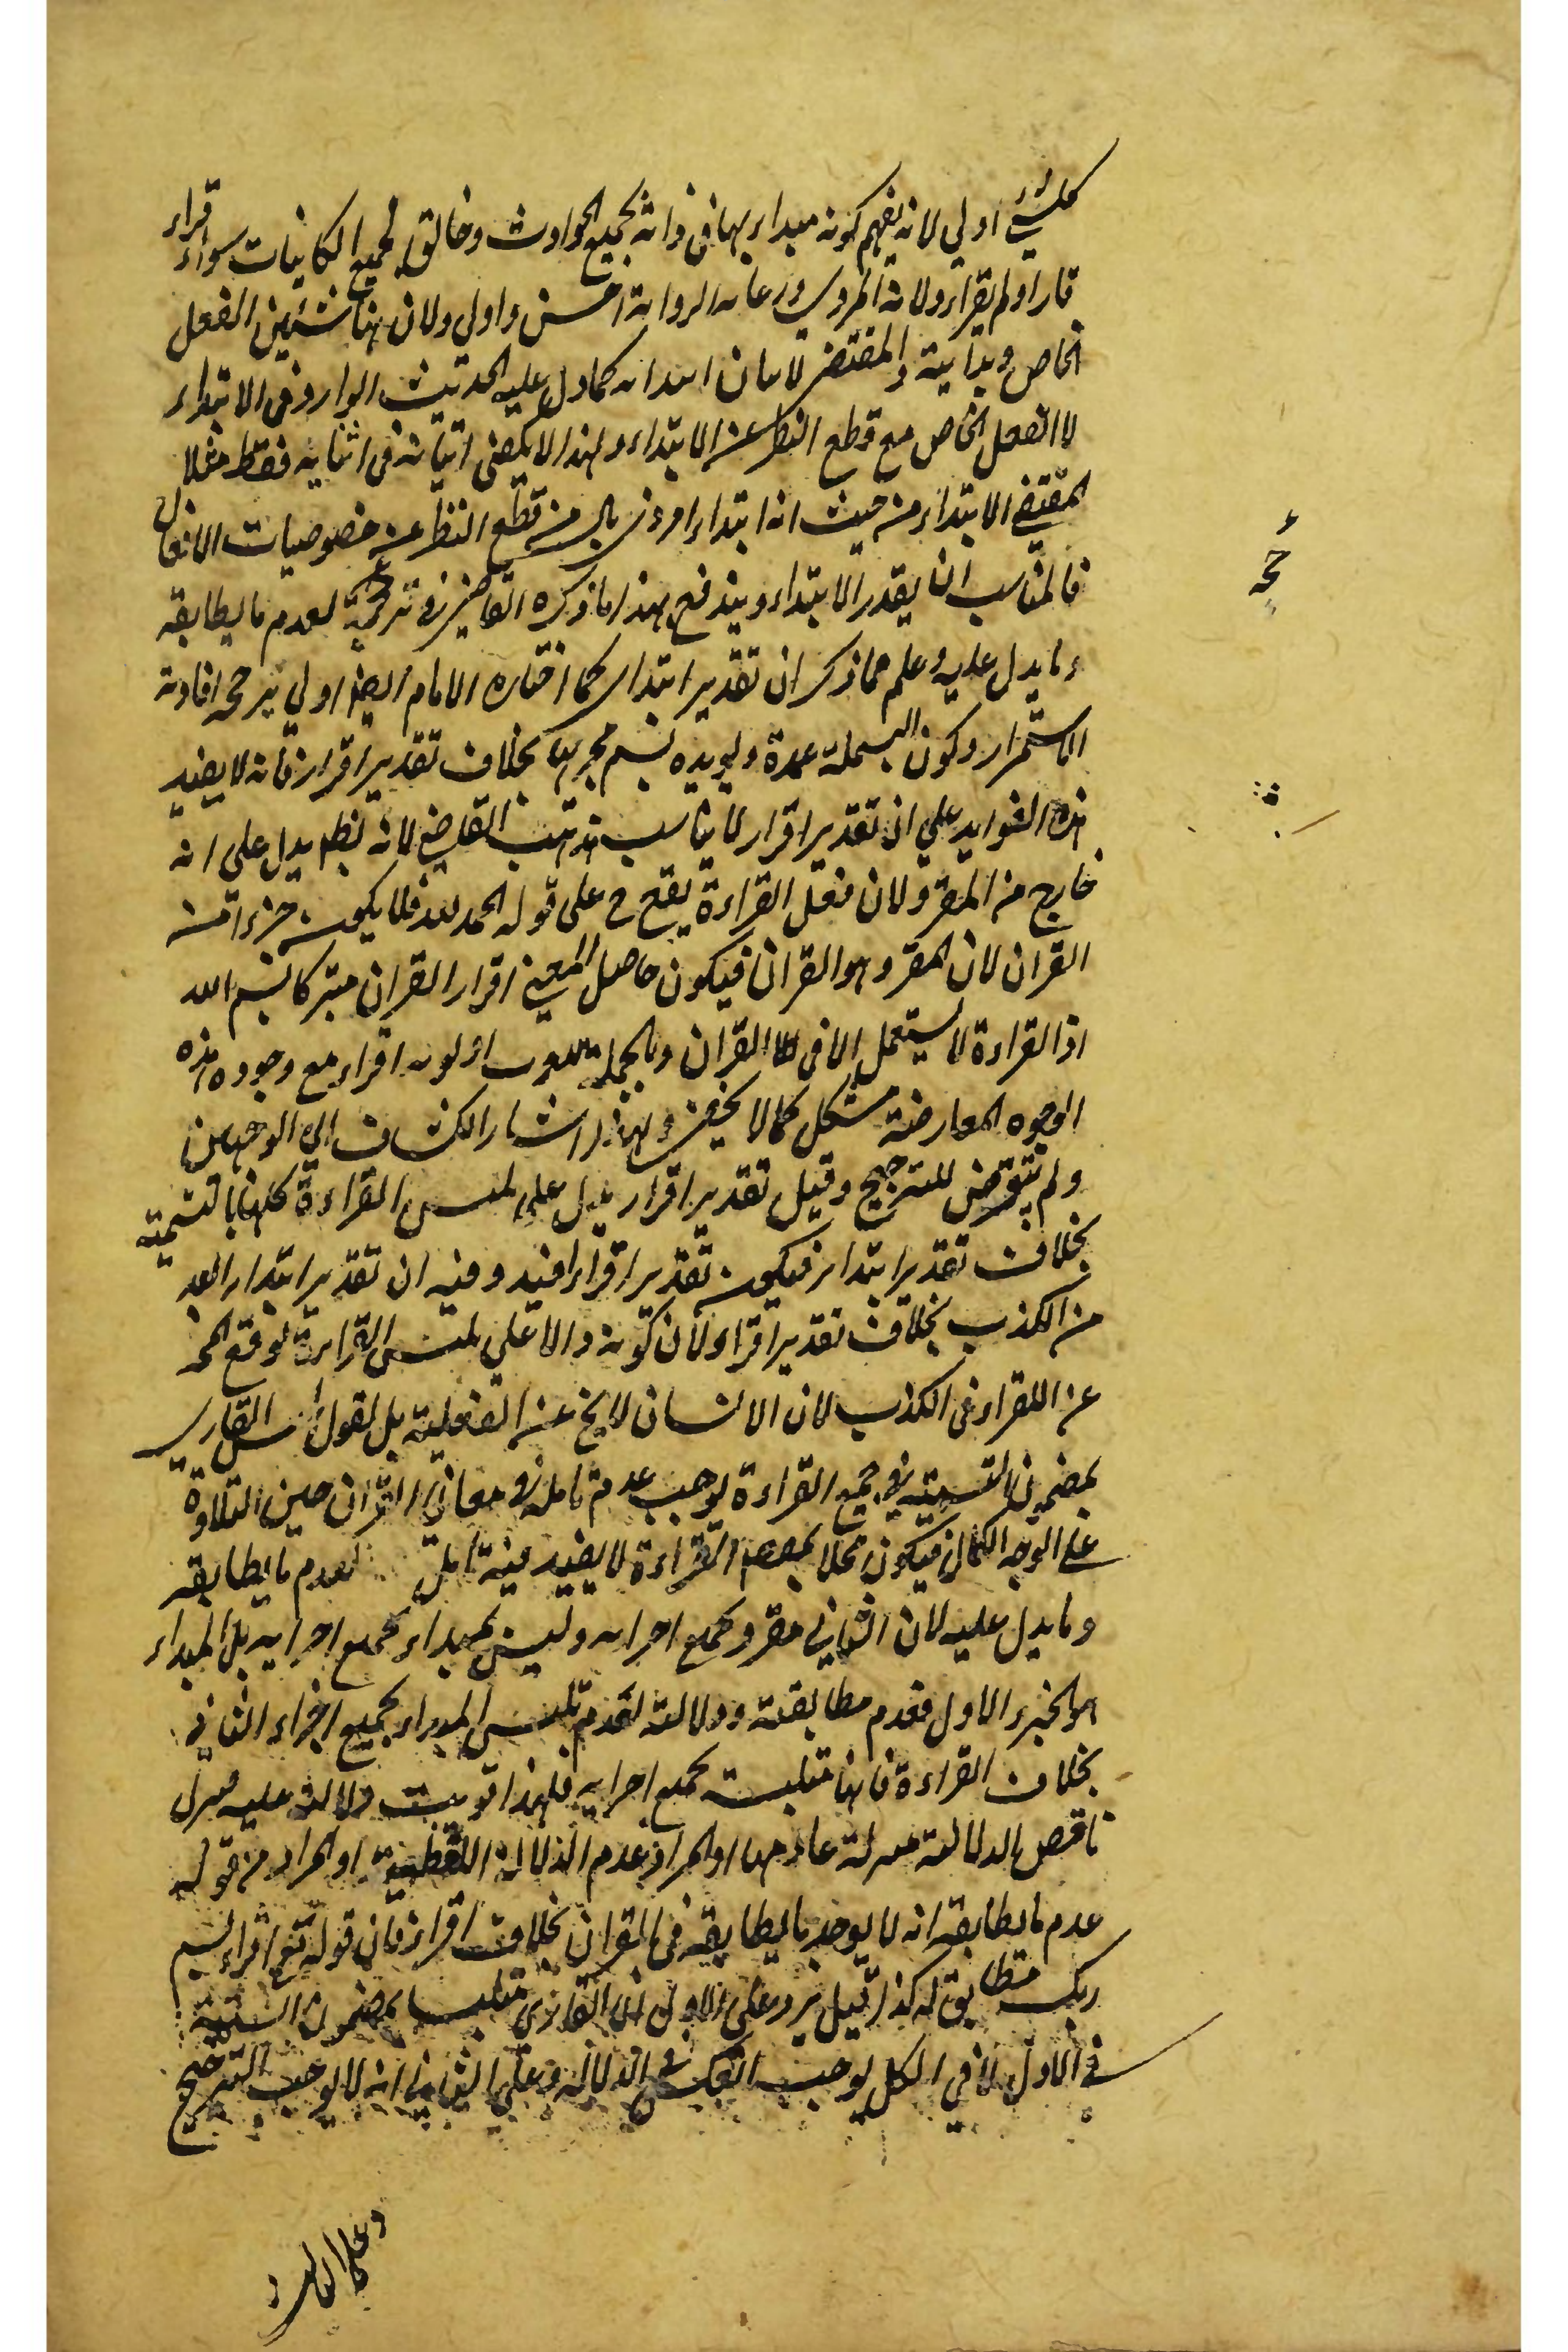 كلشيء اولي لانه يفهم كونه مبداء بها في ذاته بجميع الحوادث وخالق لجميع الكاينات سواء قراء
قارا ولم يقراء ولانه المروي ورعاية الرواية احسن واولي ولان هنا شئين الفعل
الخاص وبداية والمقتضي لا تيان ابتدائه كما دل عليه الحديث الوارد في الابتداء
لا الفعل الخاص مع قطع النظر عن الابتداء ولهذا لا يكفي اتيانه في اثنايه فقط مثلا
المقتضي الابتداء من حيث انه ابتداء امر ذي بال من قطع النظر عن خصوصيات الافعال
فالمناسب ان يقدر الابتداء ويندفع بهذا ما ذكره القاضي في ترجحه لعدم ما يطابقه
وما يدل عليه وعلم مما ذكر ان تقدير ابتداي كما اختاره الامام ايضا اولي يرجحه افادته
الاستمرار وكون البسملة عمدة ويويده بسم مجريها بخلاف تقدير اقرا فانه لا يفيد
هذه الفوايد علي ان تقدير اقرا لا يناسب مذهب القاضي لانه بظ يدل على انه
خارج من المقرو ولان فعل القراءة يقع ح على قوله الحمد لله فلا يكون جزء امن
القران لان المقرو هو القران فيكون حاصل المعني اقرا القران متبركا بسم الله
اذ القراءة لا يستعمل الا في القران وبالجملة اولوية اقراء مع وجود هذه
الوجوه المعارضة مشكل كما لا يخفي ولهذا اشار الكشاف الي الوجهين
ولم يتعرض للترجيح وقيل تقدير اقرا يدل علي تلبس القراءة كلها بالتسمية
بخلاف تقدير ابتدا فيكون تقدير اقراء افيد وفيه ان تقدير ابتدا ابعد
من الكذب بخلاف تقدير اقراء لان كونه دالا علي تلبس القراءة توقع المخ
عن القراء في الكذب لان الانسان لا يخ عن الغفلة بل نقول تلبس القاري
بمضمون التسمية في جميع القراءة يوجب عدم تامله في معاني القران حين التلاوة
علي الوجه الكمال فيكون مخلا القراءة لا يفيد فيه تامل لعدم ما يطابقه
وما يدل عليه لان الثاني مقرو بجميع اجزايه وليس بمبداء بجميع اجزايه بل المبداء
هو الجزء الاول فعدم مطابقته ودلالته لعدم تلبس المبداء بجميع اجزاء الثاني
بخلاف القراءة فانها متلبسة بجميع اجزايه فلهذا قويت دلالته عليه فنزل
ناقص الدلالة منزلة عادمها او المراد عدم الدلالة اللفظية او المراد من قوله
عدم ما يطابقه انه لا يوجد ما يطابقه في القران بخلاف اقرا فان قوله تع اقراء بسم
ربك مطابق له كذا قيل يرد علي الاول ان القاري متلبس بمضمون التسمية
في الاول لا في الكل يوجب العكس في الدلالة وعلي الثاني انه لا يوجب الترجيح
وعلي الثالث